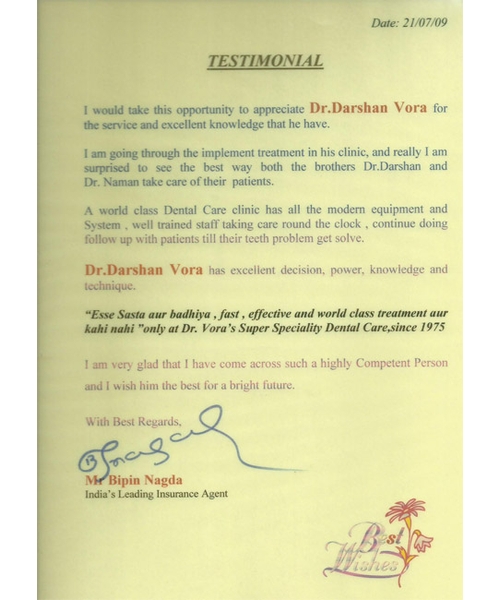 Date: 21/07/09
TESTIMONIAL
I would take this opportunity to appreciate Dr.Darshan Vora for
the service and excellent knowledge that he have.
I am going through the implement treatment in his clinic, and really I am
surprised to see the best way both the brothers Dr.Darshan and
Dr. Naman take care of their patients.
A world class Dental Care clinic has all the modern equipment and
System , well trained staff taking care round the clock , continue doing
follow up with patients till their teeth problem get solve.
Dr.Darshan Vora has excellent decision, power, knowledge and
technique.
“Esse Sasta aur badhiya , fast , effective and world class treatment aur
kahi nahi ”only at Dr. Vora’s Super Speciality Dental Care,since 1975
I am very glad that I have come across such a highly Competent Person
and I wish him the best for a bright future.
With Best Regards,
Mr Bipin Nagda
India’s Leading Insurance Agent
Best
Wishes